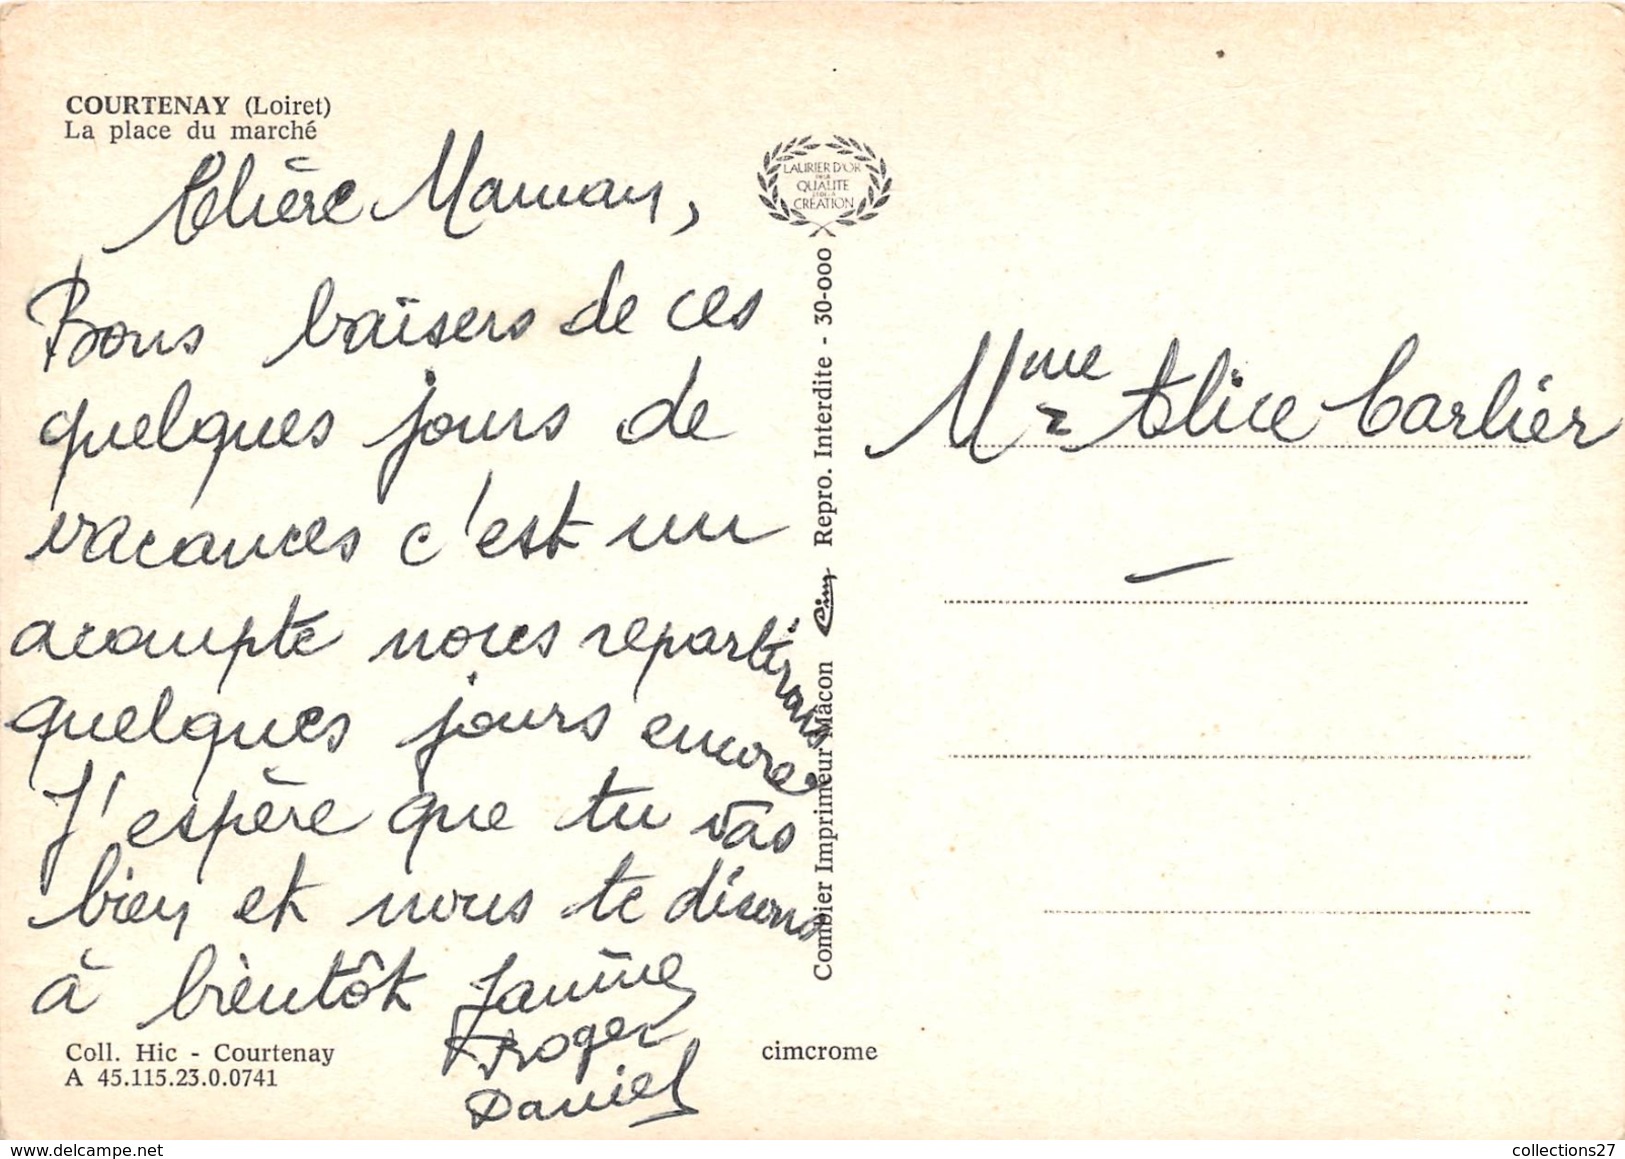 COURTENAY (Loiret)
La place du marché
Chère Maman,
Bons baisers de ces
quelques jours de
vacances c'est un
acompte nous repartirons
quelques jours encore
J'espère que tu vas
bien et nous te disons
à bientôt Janine
Roger
Daniel
Coll. Hic - Courtenay
A 45.115.23.0.0741
cimcrome
LAURIER D'OR
QUALITE
CRÉATION
Combier Imprimeur Mâcon Cim Repro. Interdite - 30-000
Mme Alice Carlier
collections27